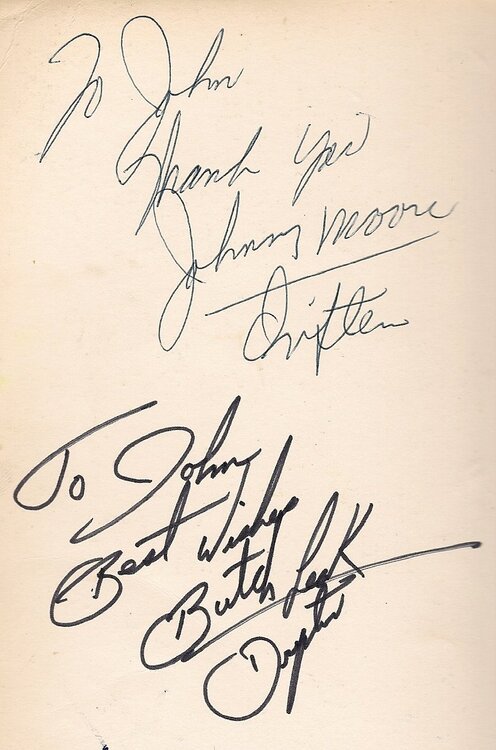 To John
Thank You
Johnny Moore
Drifters
To John
Best Wishes
Butch Leak
Drifter